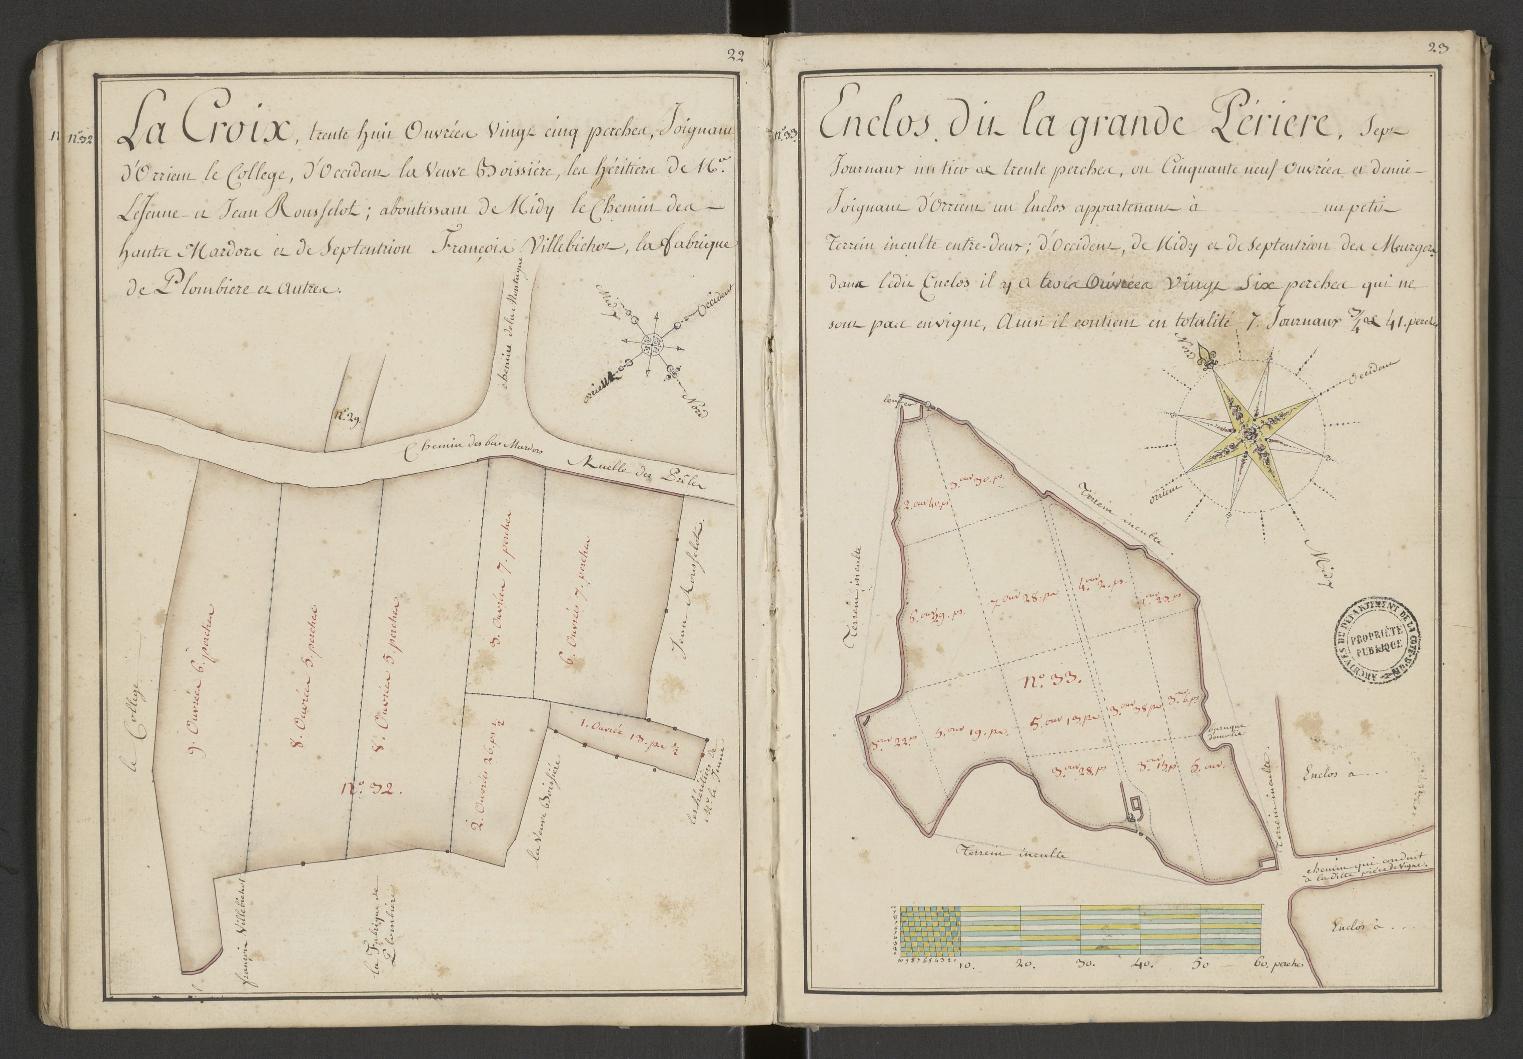 22
n.º 32
La Croix, trente huit Ouvrées vingt cinq perches, Joignant
d'Orrient le College, d'Occident la Veuve Boissiére, les héritiers de Mr.
LeJeune et Jean Rousselot; aboutissant de Midy le Chemin des
hauts Mardors et de Septentrion François Villebichot, la fabrique
de Plombiere et autres.
chemin de la Montagne
Midy
Occident
orient
Nord
n.º 29.
Chemin des bas Mardors
Ruelle des
le College
9. Ouvrées 6. perches
8. Ouvrées 5 perches
8. Ouvrées 5 perches
3. Ouvrées 7. perches
6. Ouvrées 7. perches
Jean Rousselot.
n.º 32.
2. Ouvrées 26. ps ½
1. Ouvrée 13. ps ½
la Veuve Boissiére
les héritiers de
Mr. le Jeune
françois Villebichot
la Fabrique de
Plombiere
23
n.º 33
Enclos dit la grande Périere, Sept
Journaux un tier et trente perches, ou Cinquante neuf Ouvrées et demie
Joignant d'Orrient un Enclos appartenant à un petit
Terrein inculte entre-deux; d'Occident, de Midy et de Septentrion des Meurgers
dans ledit Enclos il y a trois Ouvrées Vingt Six perches qui ne
sont pas en vigne, Ainsi il contient en totalité 7. Journaux ¾ et 41. perches
Nord
Occident
orrient
Midy
Terrein inculte
Terrein inculte
2. ouv 40 ps
3. ouv 30. ps
7. ouv 28. ps
4. ouv 2. ps
1. ouv 22 ps
n.º 33.
5. ouv 19. ps
3. ouv 28 ps
6. ouv.
Terrein inculte
Terrein inculte
Enclos à ...
chemin qui conduit
à la ditte piéce de Vigne.
Enclos à ...
ARCHIVES DU DÉPARTEMENT DE LA CÔTE-D'OR
PROPRIÉTÉ
PUBLIQUE
10. 20. 30. 40. 50 60. perches